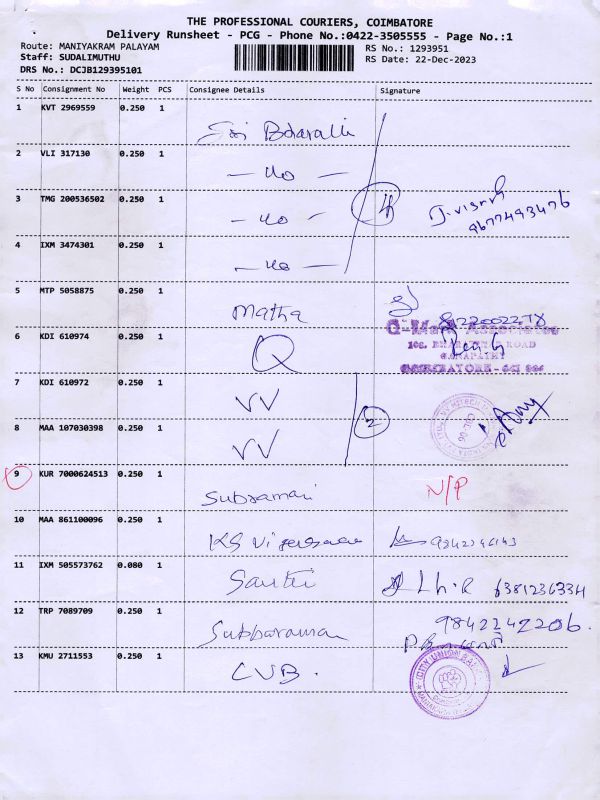 THE PROFESSIONAL COURIERS, COIMBATORE
Delivery Runsheet - PCG - Phone No.:0422-3505555 - Page No.:1
Route: MANIYAKRAM PALAYAM
RS No.: 1293951
Staff: SUDALIMUTHU
RS Date: 22-Dec-2023
DRS No.: DCJB129395101
S No Consignment No Weight PCS Consignee Details Signature
1 KVT 2969559 0.250 1
2 VLI 317130 0.250 1
3 TMG 200536502 0.250 1
4 IXM 3474301 0.250 1
5 MTP 5058875 0.250 1 Matha
6 KDI 610974 0.250 1 Q
7 KDI 610972 0.250 1 VV
8 MAA 107030398 0.250 1 VV 2
9 KUR 7000624513 0.250 1 Subramani N/P
10 MAA 861100096 0.250 1
11 IXM 505573762 0.080 1 6381236334
12 TRP 7089709 0.250 1 Subbaraman 9842242206.
13 KMU 2711553 0.250 1 CUB.
CITY UNION BANK